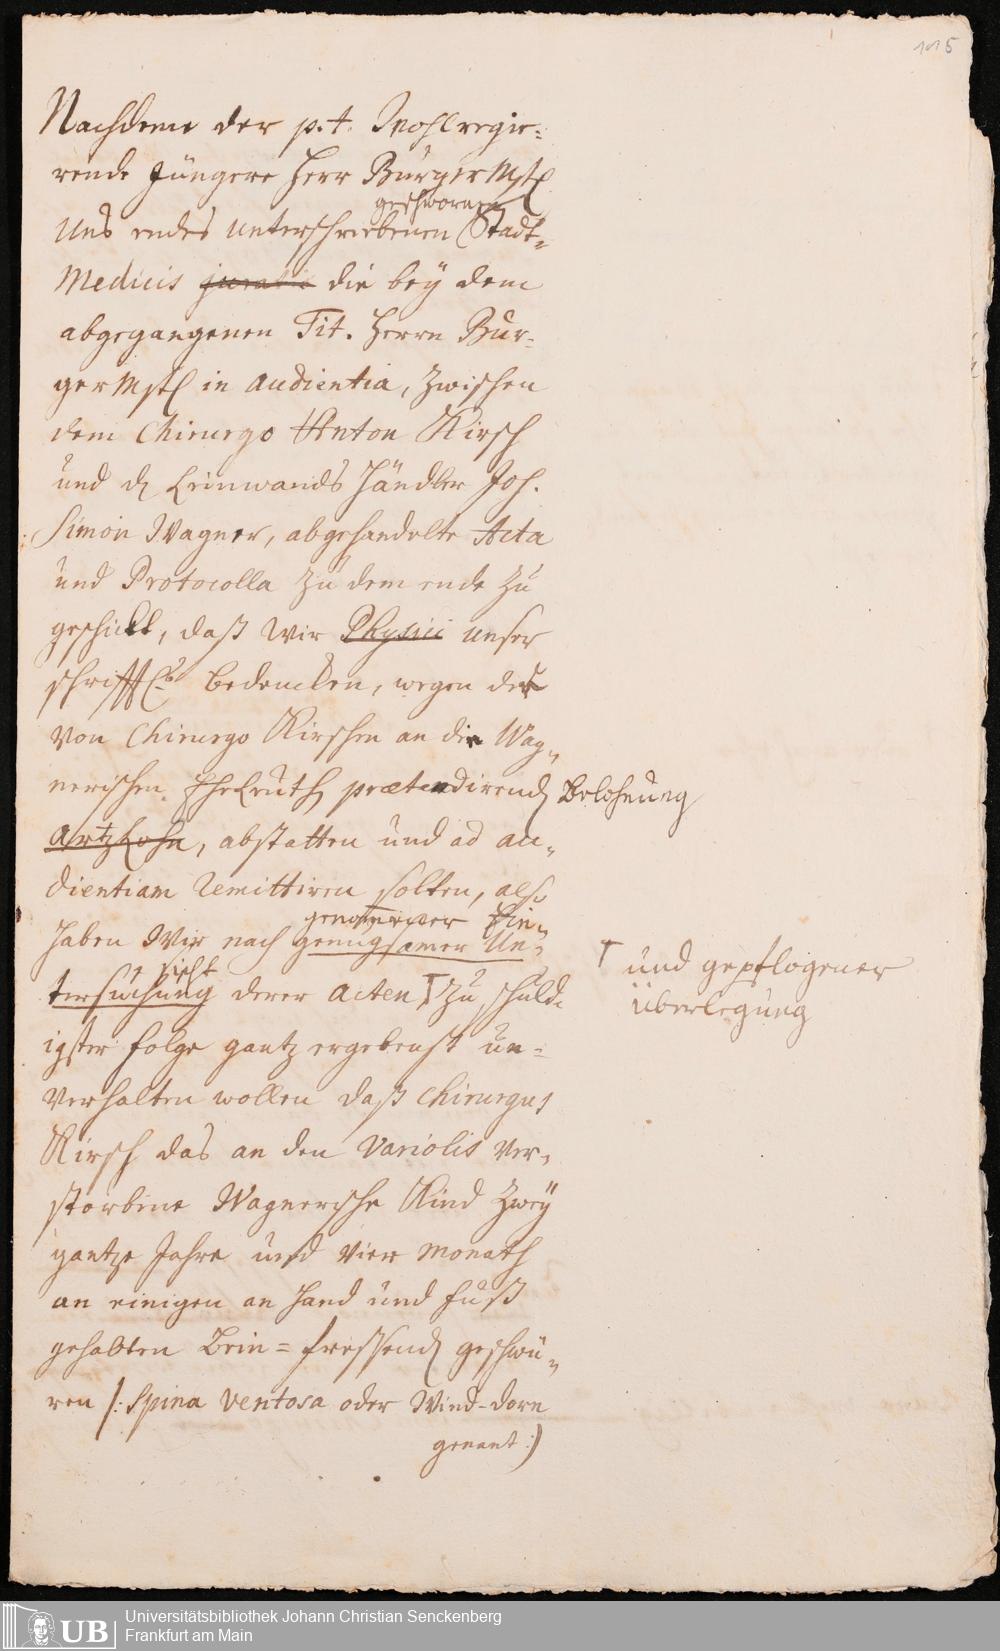 115
Nachdeme der p. t. Wohlregie-
rende Jüngere Herr BürgerMstr
geschworne
Uns endes unterschriebenen Stadt-
Medicis juratis die bey dem
abgegangenen Tit. Herrn Bur-
gerMstr in audientia, zwischen
dem Chirurgo Anton Kirsch
und d Leinwands Händler Joh.
Simon Wagner, abgehandelte Acta
und Protocolla zu dem ende zu
geschickt, daß wir Physici unser
schrifftl. bedencken, wegen der
von Chirurgo Kirschen an die Wag-
nerischen Eheleuth prætendirend Belohnung
Artzlohn, abstatten und ad au-
dientiam remittiren solten, also
genommener Ein-
haben Wir nach genugsamer Un-
sicht
tersuchung derer Acten zu schuld-
und gepflogener
überlegung
igster folge gantz ergebenst un-
verhalten wollen daß Chirurgus
Kirsch das an den Variolis ver-
storbene Wagnerische Kind zwey
gantze Jahre und vier Monath
an einigen an Hand und Fuß
gehabten Bein-fressend geschwü-
ren /: Spina ventosa oder Wind-dorn
genant :)
UB
Universitätsbibliothek Johann Christian Senckenberg
Frankfurt am Main